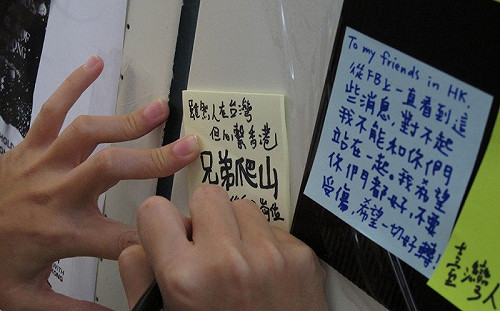 雖然人在台灣
但心繫香港
兄弟爬山
崗位
To my friends in HK.
從FB上一直看到這
些消息,對不起
我不能和你們
站在一起,我希望
你們都好,不要
受傷,希望一切好轉!
灣人
WITH
KONG